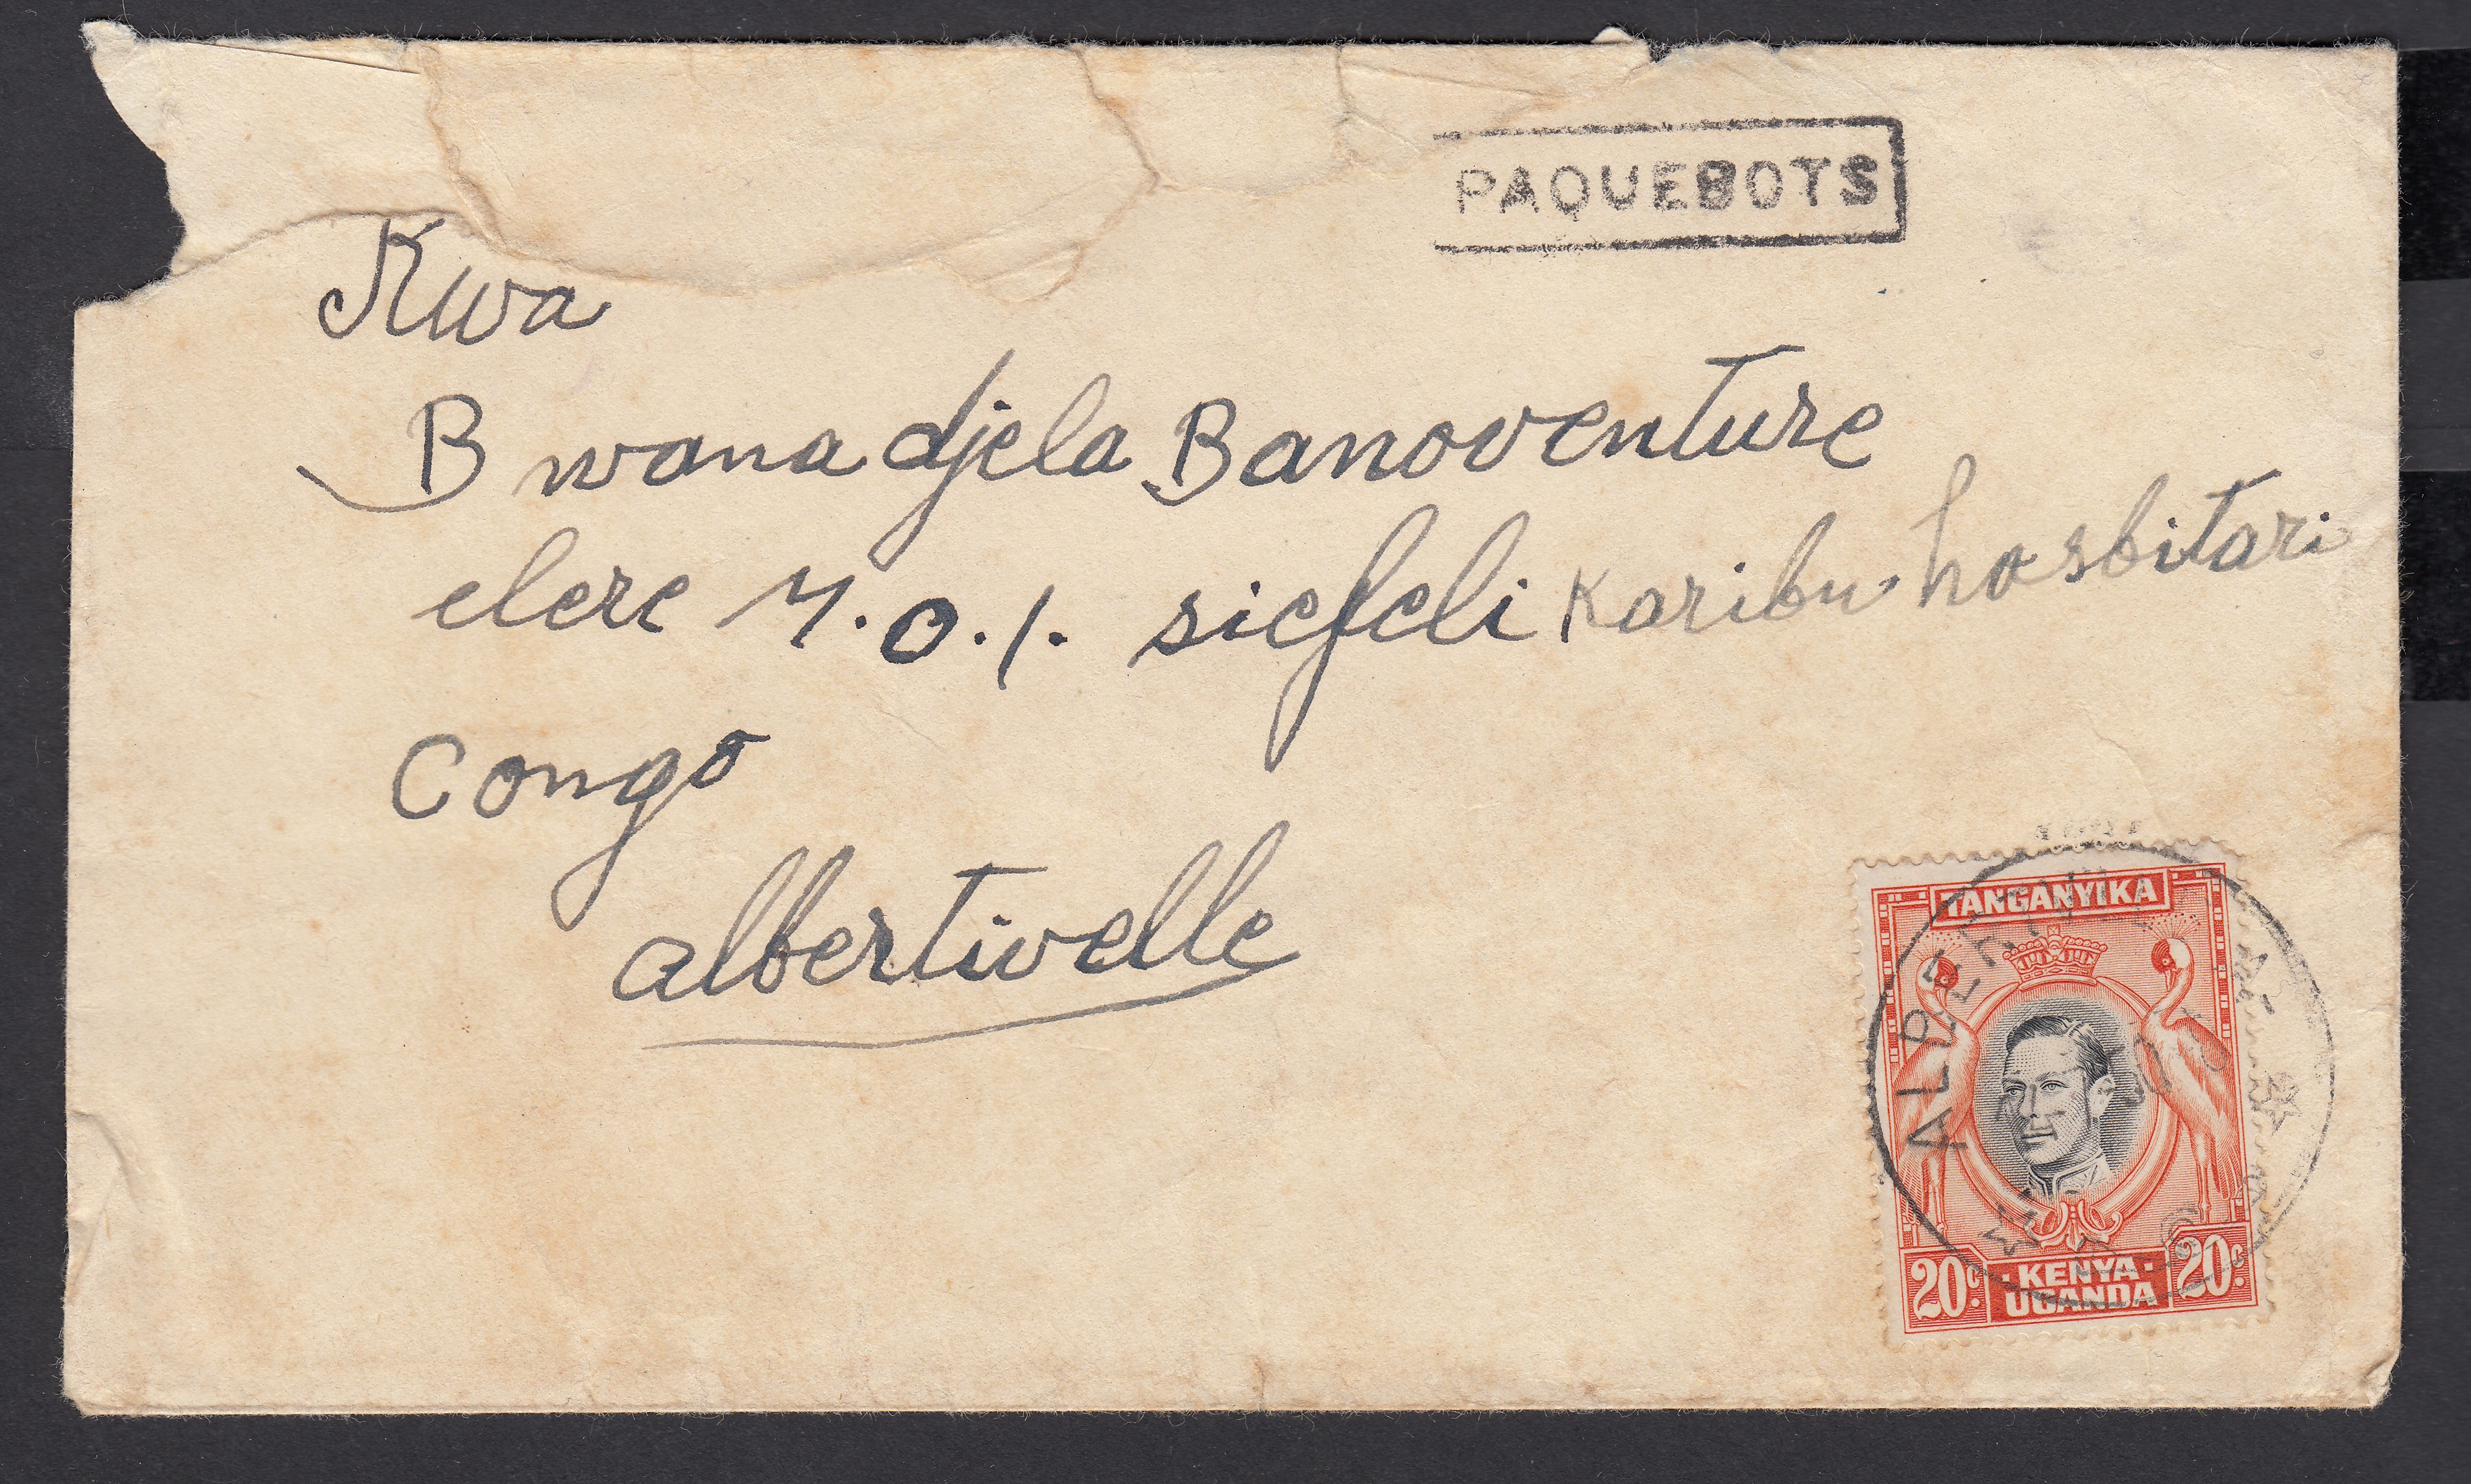 PAQUEBOTS
Kwa
Bwana djela Banoventure
elere M.O.I. siefeli Karibu hosbitari
Congo
albertivelle
TANGANYIKA
20c. KENYA- UGANDA 20c.